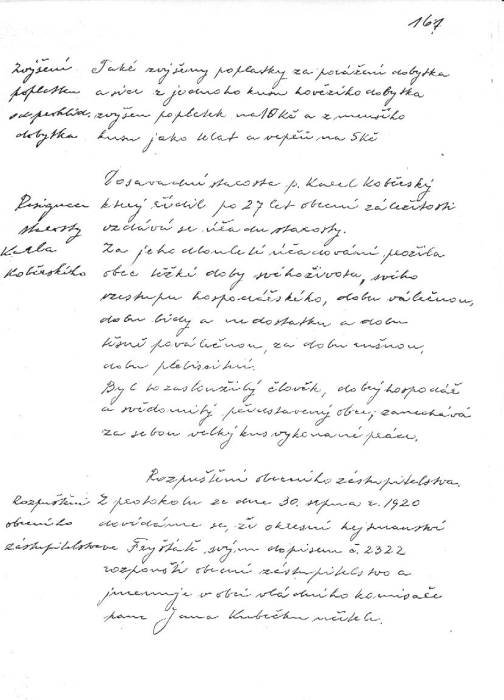 167
Zvýšení
poplatku
od prohlíd.
dobytka
Také zvýšeny poplatky za porážení dobytka
a sice z jednoho kusu hovězího dobytka
zvýšen poplatek na 10 Kč a z menšího
kusu jako telat a vepřů na 5 Kč
Resignace
starosty
Karla
Koběrského
Dosavadní starosta p. Karel Koběrský
který řídil po 27 let obecní záležitosti
vzdává se úřadu starosty.
Za jeho dlouleté úřadování prožila
obec těžké doby svého života, svého
vzestupu hospodářského, dobu válečnou,
dobu bídy a nedostatku a dobu
těsně poválečnou, za dobu rušnou,
dobu plebiscitní.
Byl to zasloužilý člověk, dobrý hospodář
a svědomitý představený obce, zanechává
za sebou velký kus vykonané práce.
Rozpuštění obecního zástupitelstva.
Rozpuštění
obecního
zástupitelstva
Z protokolu ze dne 30. srpna r. 1920
dovídáme se, že okresní hejtmanství
ve Fryštátě svým dopisem č. 2322
rozpouští obecní zástupitelstvo a
jmenuje v obci vládního komisaře
pana Jana Kubečku učitele.